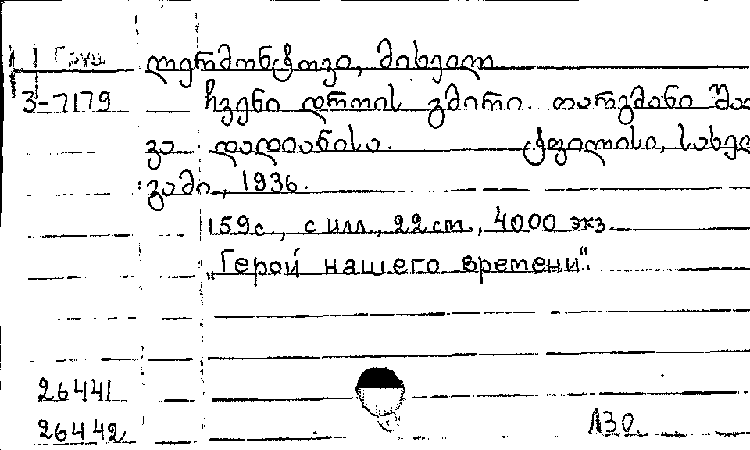 Груз ლერმონტოვი, მიხეილ
3-7179 ჩვენი დროის გმირი. თარგმანი შა
ვა დადიანისა. ტფილისი, სახელ
გამი, 1936.
159 с., с илл., 22 см., 4000 экз.
„Герой нашего времени".
26441
26442. ЛЗО.